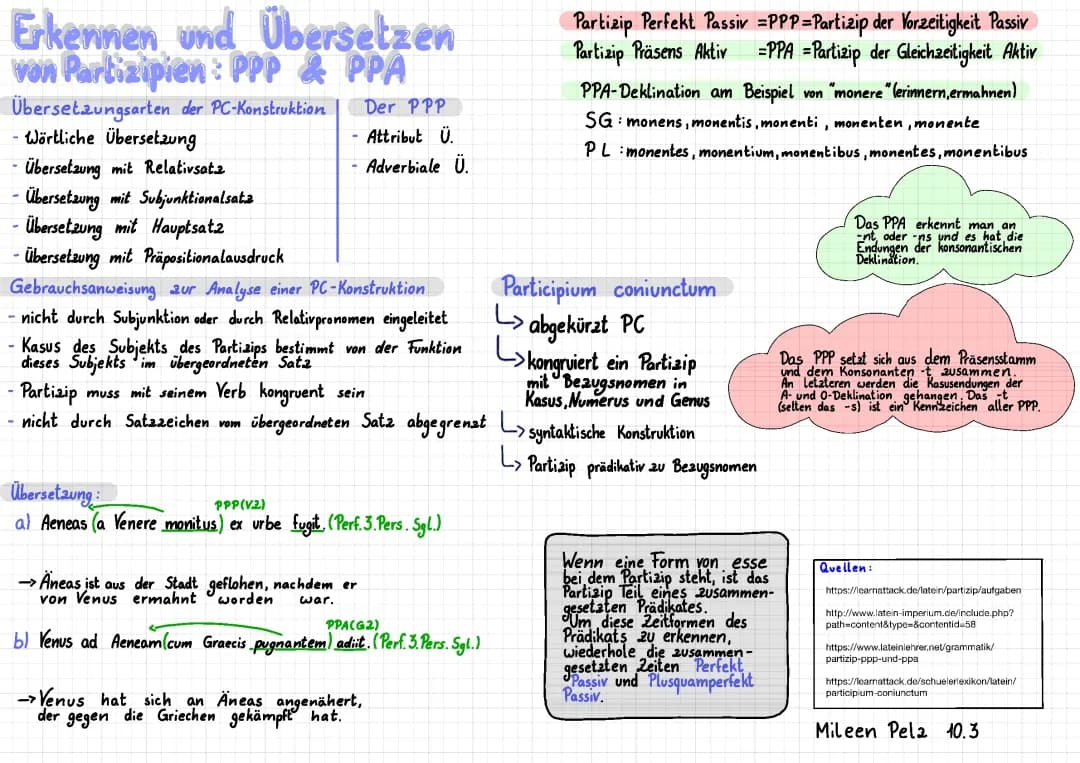 Erkennen und Übersetzen
von Partizipien: PPP & PPA
Übersetzungsarten der PC-Konstruktion
- Wörtliche Übersetzung
- Übersetzung mit Relativsatz
- Übersetzung mit Subjunktionalsatz
- Übersetzung mit Hauptsatz
- Übersetzung mit Präpositionalausdruck
Der PPP
- Attribut Ü.
- Adverbiale Ü.
Partizip Perfekt Passiv =PPP=Partizip der Vorzeitigkeit Passiv
Partizip Präsens Aktiv =PPA =Partizip der Gleichzeitigkeit Aktiv
PPA-Deklination am Beispiel von "monere"(erinnern,ermahnen)
SG: monens, monentis, monenti, monenten, monente
PL: monentes, monentium, monentibus, monentes, monentibus
Das PPA erkennt man an
-nt, oder -ns und es hat die
Endungen der konsonantischen
Deklination.
Gebrauchsanweisung zur Analyse einer PC-Konstruktion
- nicht durch Subjunktion oder durch Relativpronomen eingeleitet
- Kasus des Subjekts des Partizips bestimmt von der Funktion
dieses Subjekts im übergeordneten Satz
- Partizip muss mit seinem Verb kongruent sein
- nicht durch Satzzeichen vom übergeordneten Satz abgegrenzt
Participium coniunctum
↳ abgekürzt PC
↳ kongruiert ein Partizip
mit Bezugsnomen in
Kasus, Numerus und Genus
↳ syntaktische Konstruktion
↳ Partizip prädikativ zu Bezugsnomen
Das PPP setzt sich aus dem Präsensstamm
und dem Konsonanten -t zusammen.
An letzteren werden die Kasusendungen der
A- und O-Deklination gehangen. Das -t
(selten das -s) ist ein Kennzeichen aller PPP.
Übersetzung:
PPP(VZ)
a) Aeneas (a Venere monitus) ex urbe fugit. (Perf. 3. Pers. Sgl.)
→ Äneas ist aus der Stadt geflohen, nachdem er
von Venus ermahnt worden war.
PPA(GZ)
b) Venus ad Aeneam (cum Graecis pugnantem) adiit. (Perf. 3. Pers. Sgl.)
→ Venus hat sich an Äneas angenähert,
der gegen die Griechen gekämpft hat.
Wenn eine Form von esse
bei dem Partizip steht, ist das
Partizip Teil eines zusammen-
gesetzten Prädikates.
Um diese Zeitformen des
Prädikats zu erkennen,
wiederhole die zusammen-
gesetzten Zeiten Perfekt
Passiv und Plusquamperfekt
Passiv.
Quellen:
https://learnattack.de/latein/partizip/aufgaben
http://www.latein-imperium.de/include.php?
path=content&type=&contentid=58
https://www.lateinlehrer.net/grammatik/
partizip-ppp-und-ppa
https://learnattack.de/schuelerlexikon/latein/
participium-coniunctum
Mileen Pelz 10.3